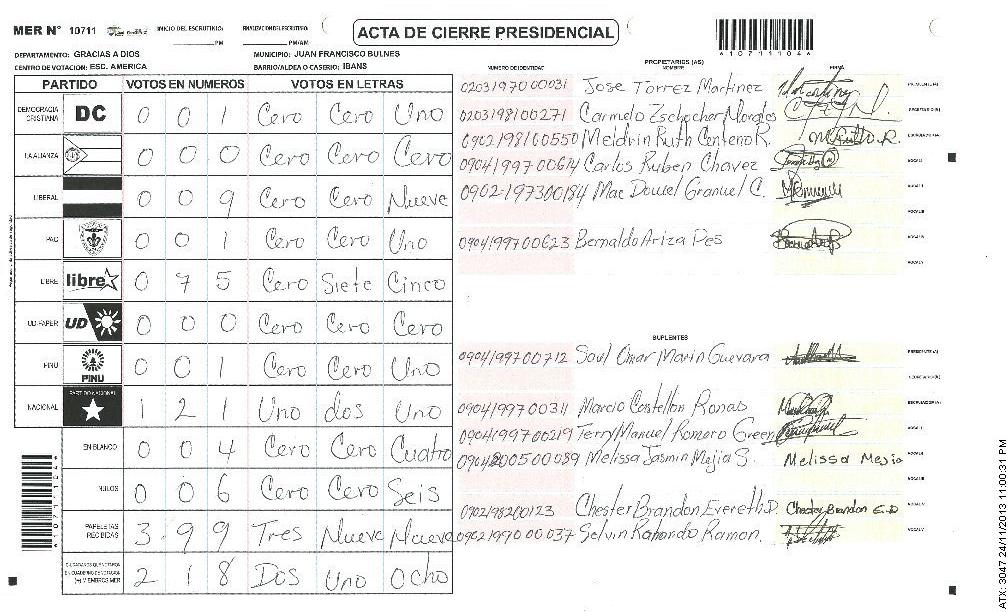 MER N° 10711
INICIO DEL ESCRUTINIO:
______PM
FINALIZACION DEL ESCRUTINIO:
______PM/AM
ACTA DE CIERRE PRESIDENCIAL
A107111044
DEPARTAMENTO: GRACIAS A DIOS
MUNICIPIO: JUAN FRANCISCO BULNES
CENTRO DE VOTACION: ESC. AMERICA
BARRIO/ALDEA O CASERIO: IBANS
PARTIDO VOTOS EN NUMEROS VOTOS EN LETRAS
DEMOCRACIA CRISTIANA DC 0 0 1 Cero Cero Uno
LA ALIANZA 0 0 0 Cero Cero Cero
LIBERAL 0 0 9 Cero Cero Nueve
PAC 0 0 1 Cero Cero Uno
LIBRE libre 0 7 5 Cero Siete Cinco
UD-FAPER UD 0 0 0 Cero Cero Cero
PINU PINU 0 0 1 Cero Cero Uno
NACIONAL PARTIDO NACIONAL 1 2 1 Uno dos Uno
EN BLANCO 0 0 4 Cero Cero Cuatro
NULOS 0 0 6 Cero Cero Seis
PAPELETAS RECIBIDAS 3 9 9 Tres Nueve Nueve
2 1 8 Dos Uno Ocho
PROPIETARIOS (AS)
NUMERO DE IDENTIDAD NOMBRE FIRMA
0203197000031 Jose Torrez Martinez PRESIDENTE(A)
0203198100271 Carmelo Zschocher Morales SECRETARIO(A)
0902198100550 Meldrin Ruth Centeno R. ESCRUTADOR(A)
0904199700614 Carlos Ruben Chavez VOCAL I
0902-197300184 Mac Daniel Granuel C. VOCAL II
VOCAL III
0904199700623 Bernaldo Ariza Pes VOCAL IV
VOCAL V
SUPLENTES
0904199700712 Saul Omar Marin Guevara PRESIDENTE(A)
SECRETARIO(A)
0904199700311 Marcio Castellon Ronas ESCRUTADOR(A)
0904199700219 Terry Manuel Romero Green VOCAL I
0904200500089 Melissa Jasmin Mejia S. Melissa Mejia VOCAL II
VOCAL III
0902198200123 Chester Brandon Everett D. Chester Brandon E.D VOCAL IV
0902199000037 Selvin Ramon. VOCAL V
A107111044
ATX: 3047 24/11/2013 11:00:31 PM